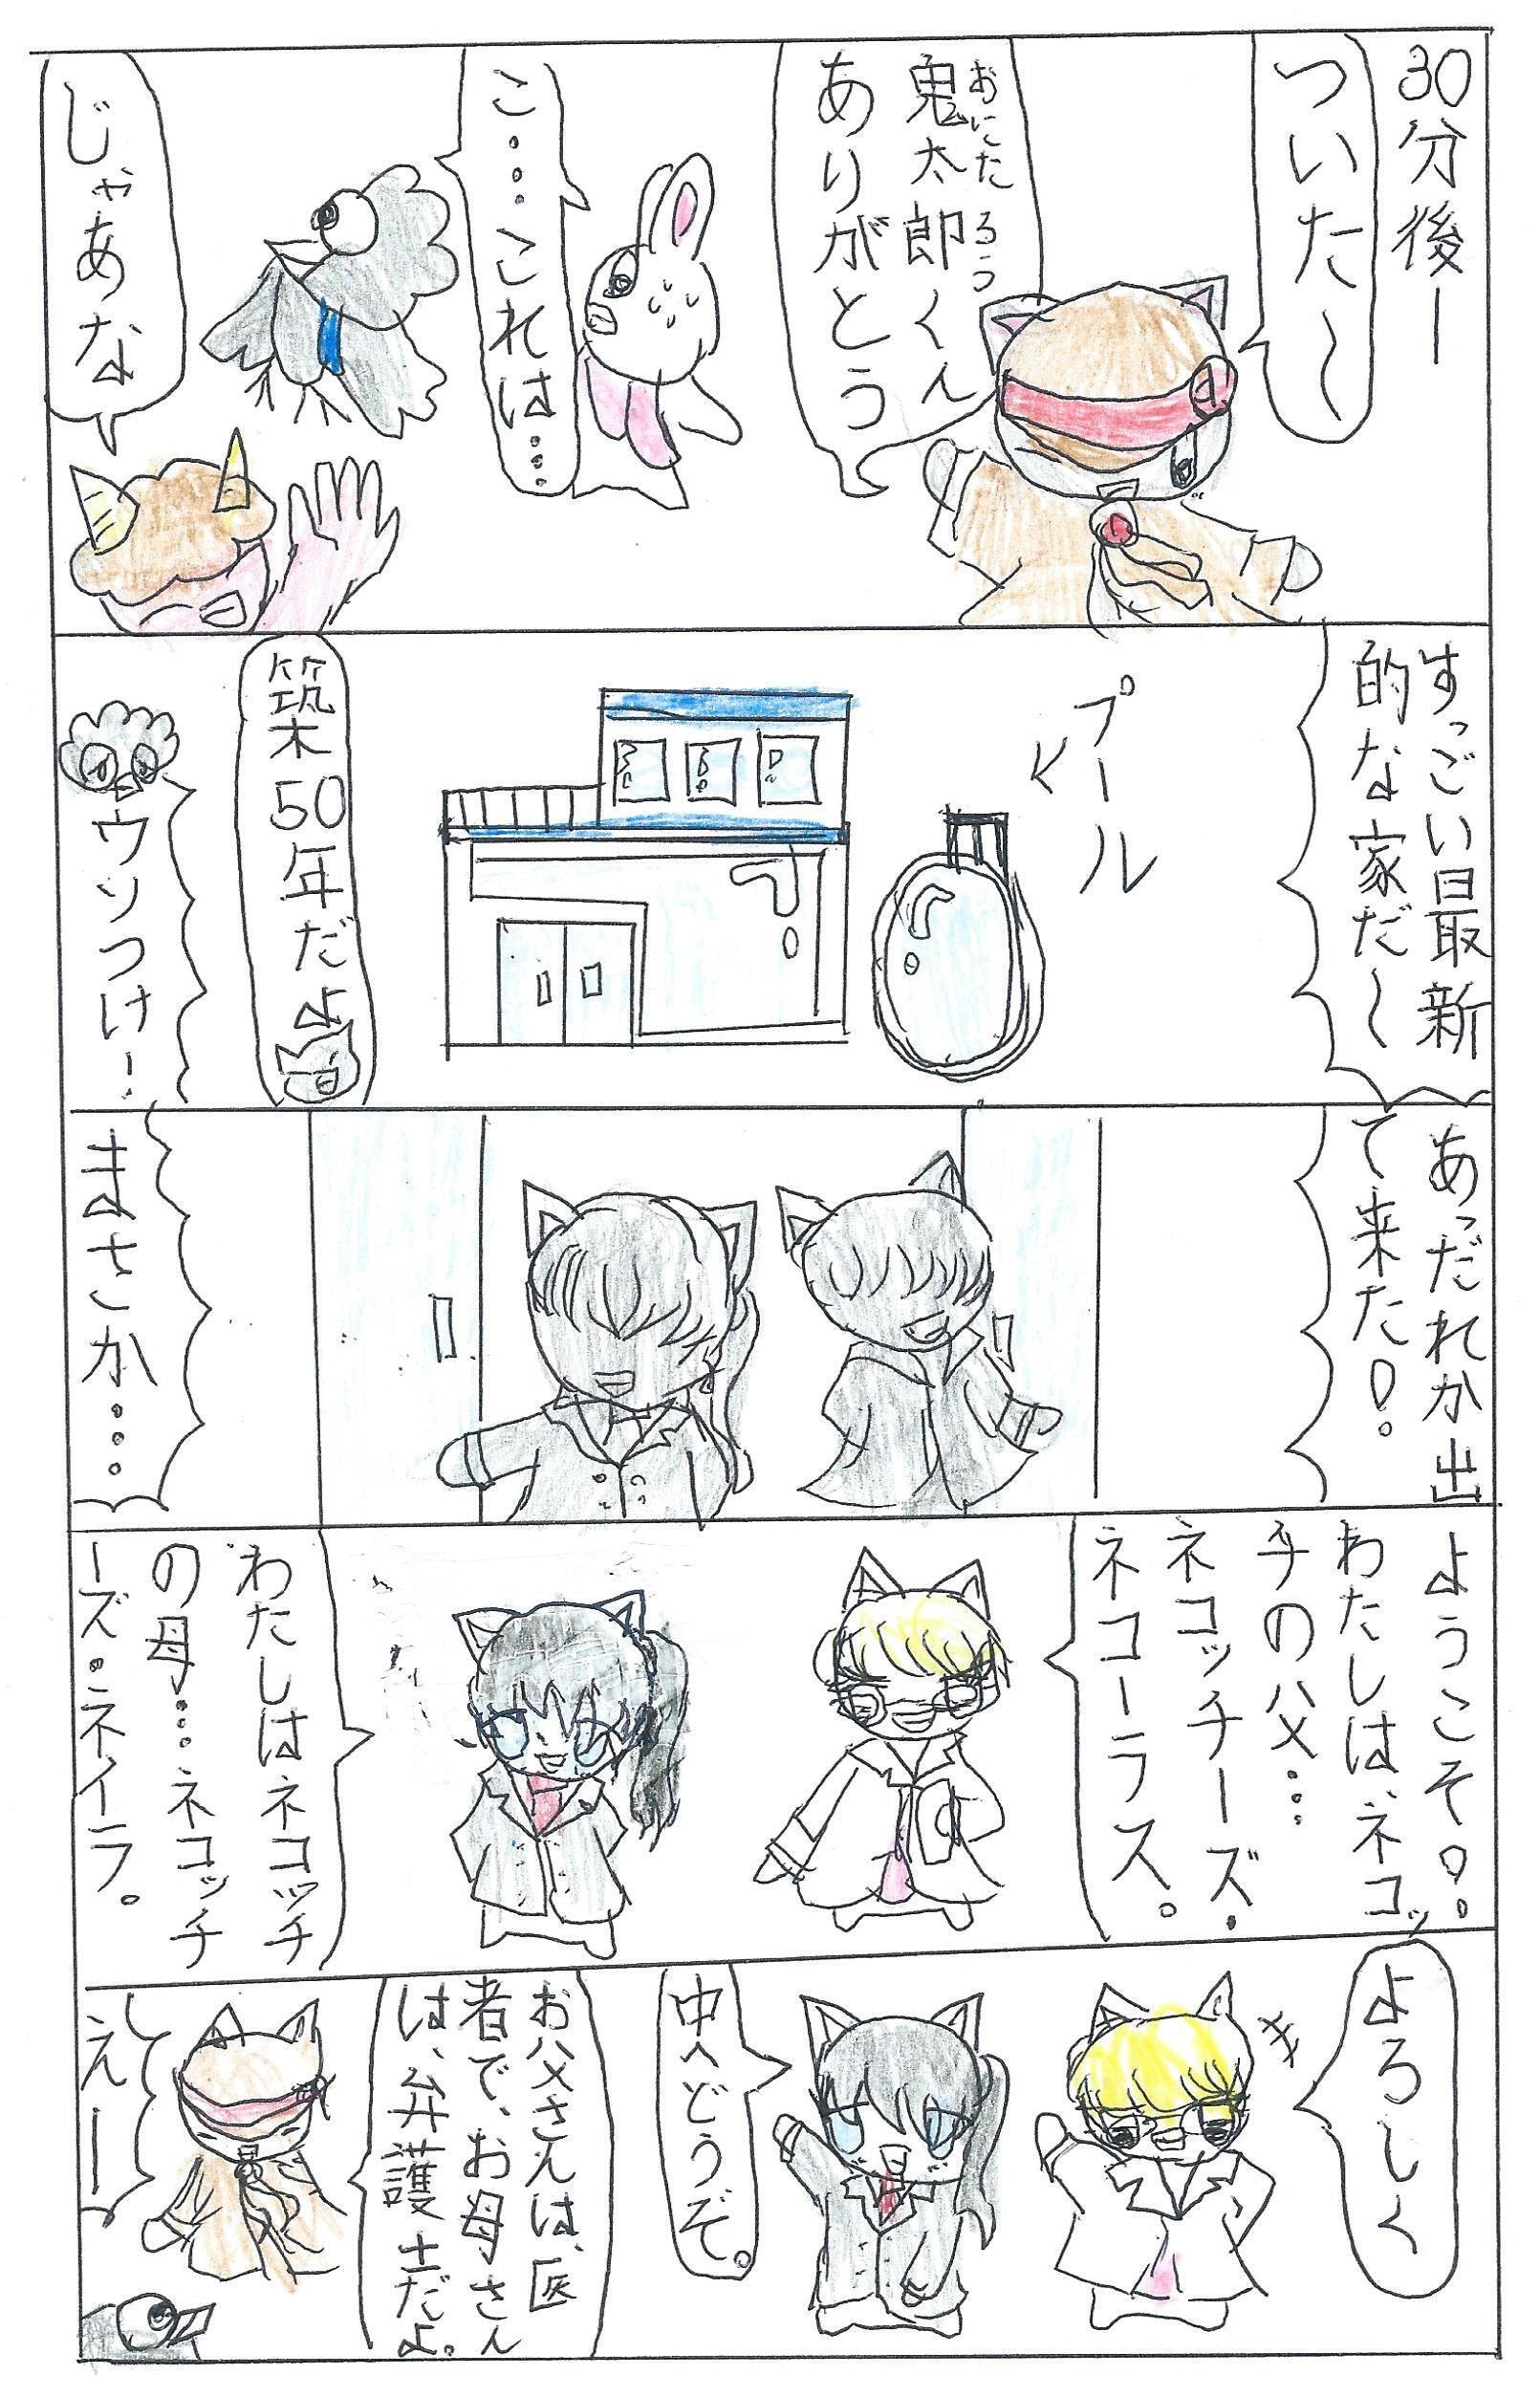 30分後ー
ついた〜
鬼太郎くん
おにたろう
ありがとう
こ…これは…
じゃあな
すっごい最新
的な家だ〜
プール
築50年だよ
ウソつけー!
あっだれか出
て来た!
まさか…
ようこそ!
わたしは、ネコッ
チの父…
ネコッチーズ・
ネコーラス。
わたしはネコッチ
の母…ネコッチ
ーズ・ネイラ。
よろしく
中へどうぞ。
お父さんは、医
者で、お母さん
は、弁護士だよ。
えーっ